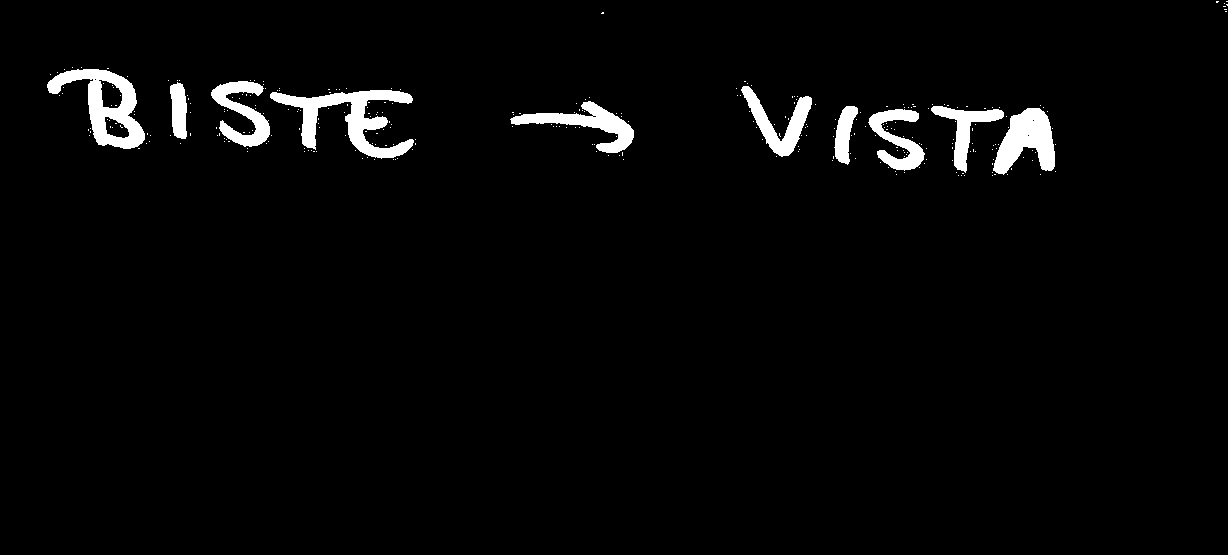 BISTE → VISTA